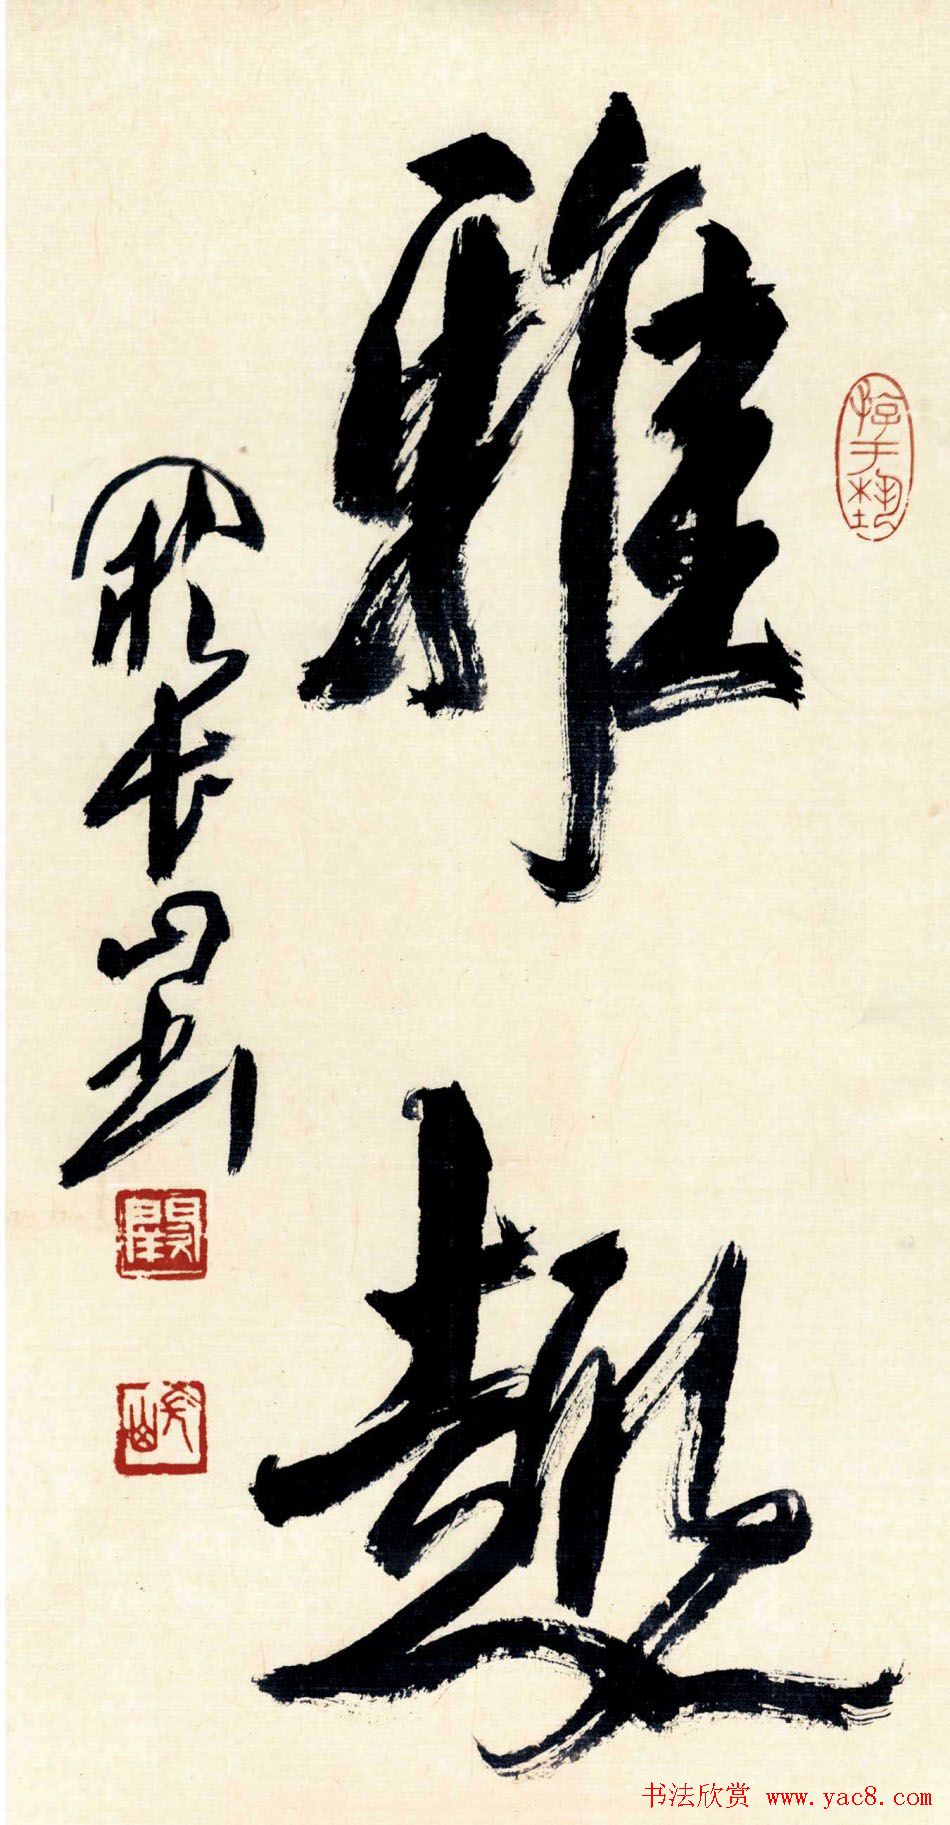 雅趣
阚长山书
书法欣赏 www.yac8.com